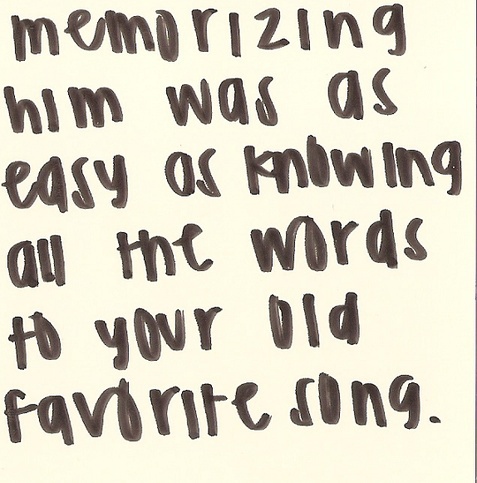 memorizing
him was as
easy as knowing
all the words
to your old
favorite song.